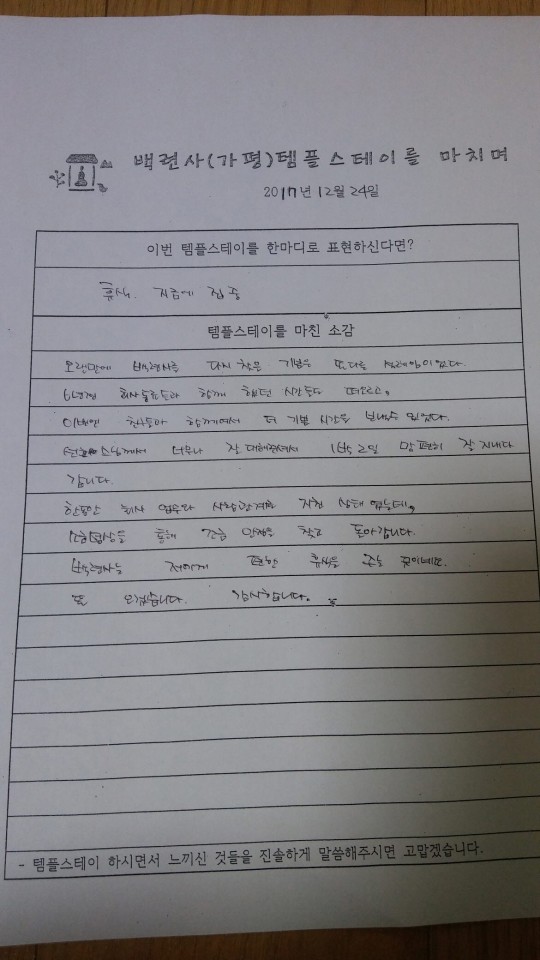 백련사(가평)템플스테이를 마치며
2017년 12월 24일
이번 템플스테이를 한마디로 표현하신다면?
휴식. 지금에 집중
템플스테이를 마친 소감
오랜만에 백련사를 다시 찾은 기분은 또다른 설레임이었다.
6년전 회사동료들과 함께 했던 시간들도 떠오르고,
이번엔 친구들과 함께여서 더 기쁜 시간을 보낼수 있었다.
스님께서 너무나 잘 대해주셔서 1박 2일 맘 편히 잘 지내다
갑니다.
한동안 회사 업무와 사람관계로 지친 상태였는데,
호흡명상을 통해 조금 안정을 찾고 돌아갑니다.
백련사는 저에게 편한 휴식을 주는 곳이네요.
또 오겠습니다. 감사합니다.
- 템플스테이 하시면서 느끼신 것들을 진솔하게 말씀해주시면 고맙겠습니다.